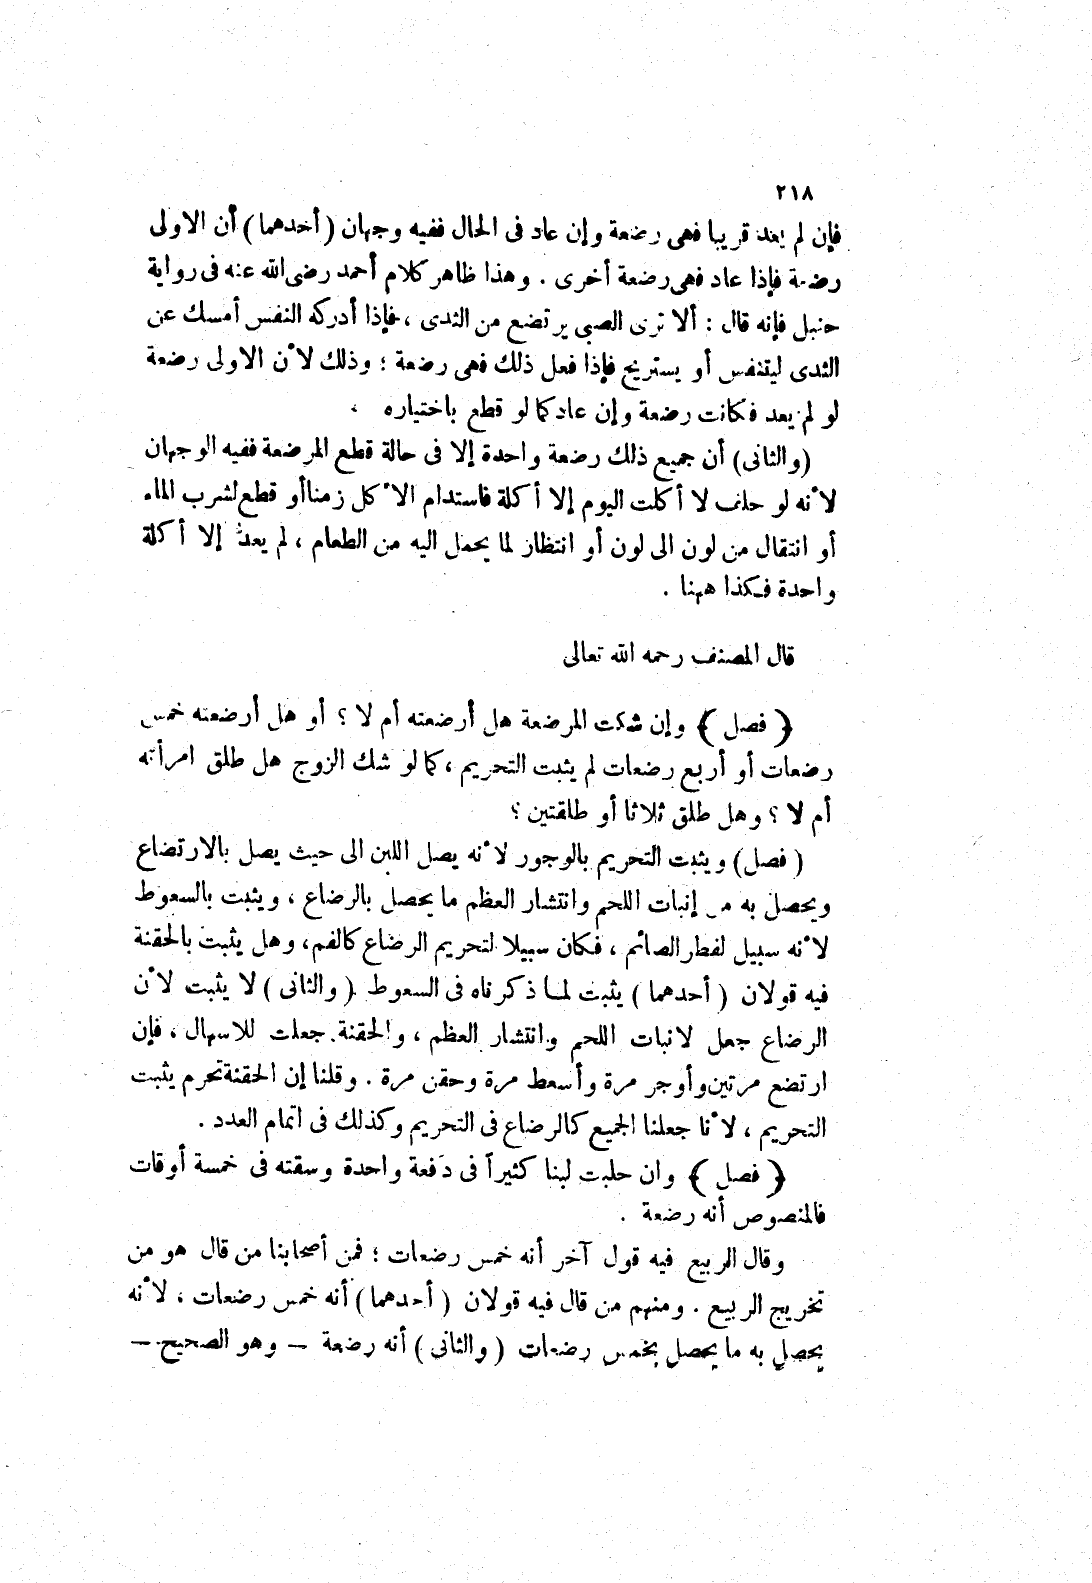 ٢١٨
فإن لم يعد قريبا فهى رضعة وإن عاد فى الحال ففيه وجهان (أحدهما) أن الاولى
رضعة فإذا عاد فهى رضعة أخرى . وهذا ظاهر كلام أحمد رضى الله عنه فى رواية
حنبل فإنه قال : ألا ترى الصبى يرتضع من الثدى ، فإذا أدركه النفس أمسك عن
الثدى ليتنفس أو يستريح فإذا فعل ذلك فهى رضعة ؛ وذلك لأن الاولى رضعة
لو لم يعد فكانت رضعة وإن عاد كما لو قطع باختياره .
(والثانى) أن جميع ذلك رضعة واحدة إلا فى حالة قطع المرضعة ففيه الوجهان
لأنه لو حلف لا أكلت اليوم إلا أكلة فاستدام الأكل زمنا أو قطع لشرب الماء
أو انتقال من لون الى لون أو انتظار لما يحمل اليه من الطعام ، لم يعد إلا أكلة
واحدة فكذا ههنا .
قال المصنف رحمه الله تعالى
﴿ فصل ﴾ وإن شكت المرضعة هل أرضعته أم لا ؟ أو هل أرضعته خمس
رضعات أو أربع رضعات لم يثبت التحريم ، كما لو شك الزوج هل طلق امرأته
أم لا ؟ وهل طلق ثلاثا أو طلقتين ؟
( فصل) ويثبت التحريم بالوجور لأنه يصل اللبن الى حيث يصل بالارتضاع
ويحصل به من إنبات اللحم وانتشار العظم ما يحصل بالرضاع ، ويثبت بالسعوط
لأنه سبيل لفطر الصائم ، فكان سبيلا لتحريم الرضاع كالفم، وهل يثبت بالحقنة
فيه قولان ( أحدهما ) يثبت لما ذكرناه فى السعوط ( والثانى ) لا يثبت لأن
الرضاع جعل لانبات اللحم وانتشار العظم ، والحقنة جعلت للاسهال ، فإن
ارتضع مرتين وأوجر مرة وأسعط مرة وحقن مرة . وقلنا إن الحقنة تحرم يثبت
التحريم ، لأنا جعلنا الجميع كالرضاع فى التحريم وكذلك فى اتمام العدد .
﴿ فصل ﴾ وان حلبت لبنا كثيراً فى دفعة واحدة وسقته فى خمسة أوقات
فالمنصوص أنه رضعة .
وقال الربيع فيه قول آخر أنه خمس رضعات ؛ فمن أصحابنا من قال هو من
تخريج الربيع . ومنهم من قال فيه قولان ( أحدهما ) أنه خمس رضعات ، لأنه
يحصل به ما يحصل بخمس رضعات ( والثانى ) أنه رضعة – وهو الصحيح –